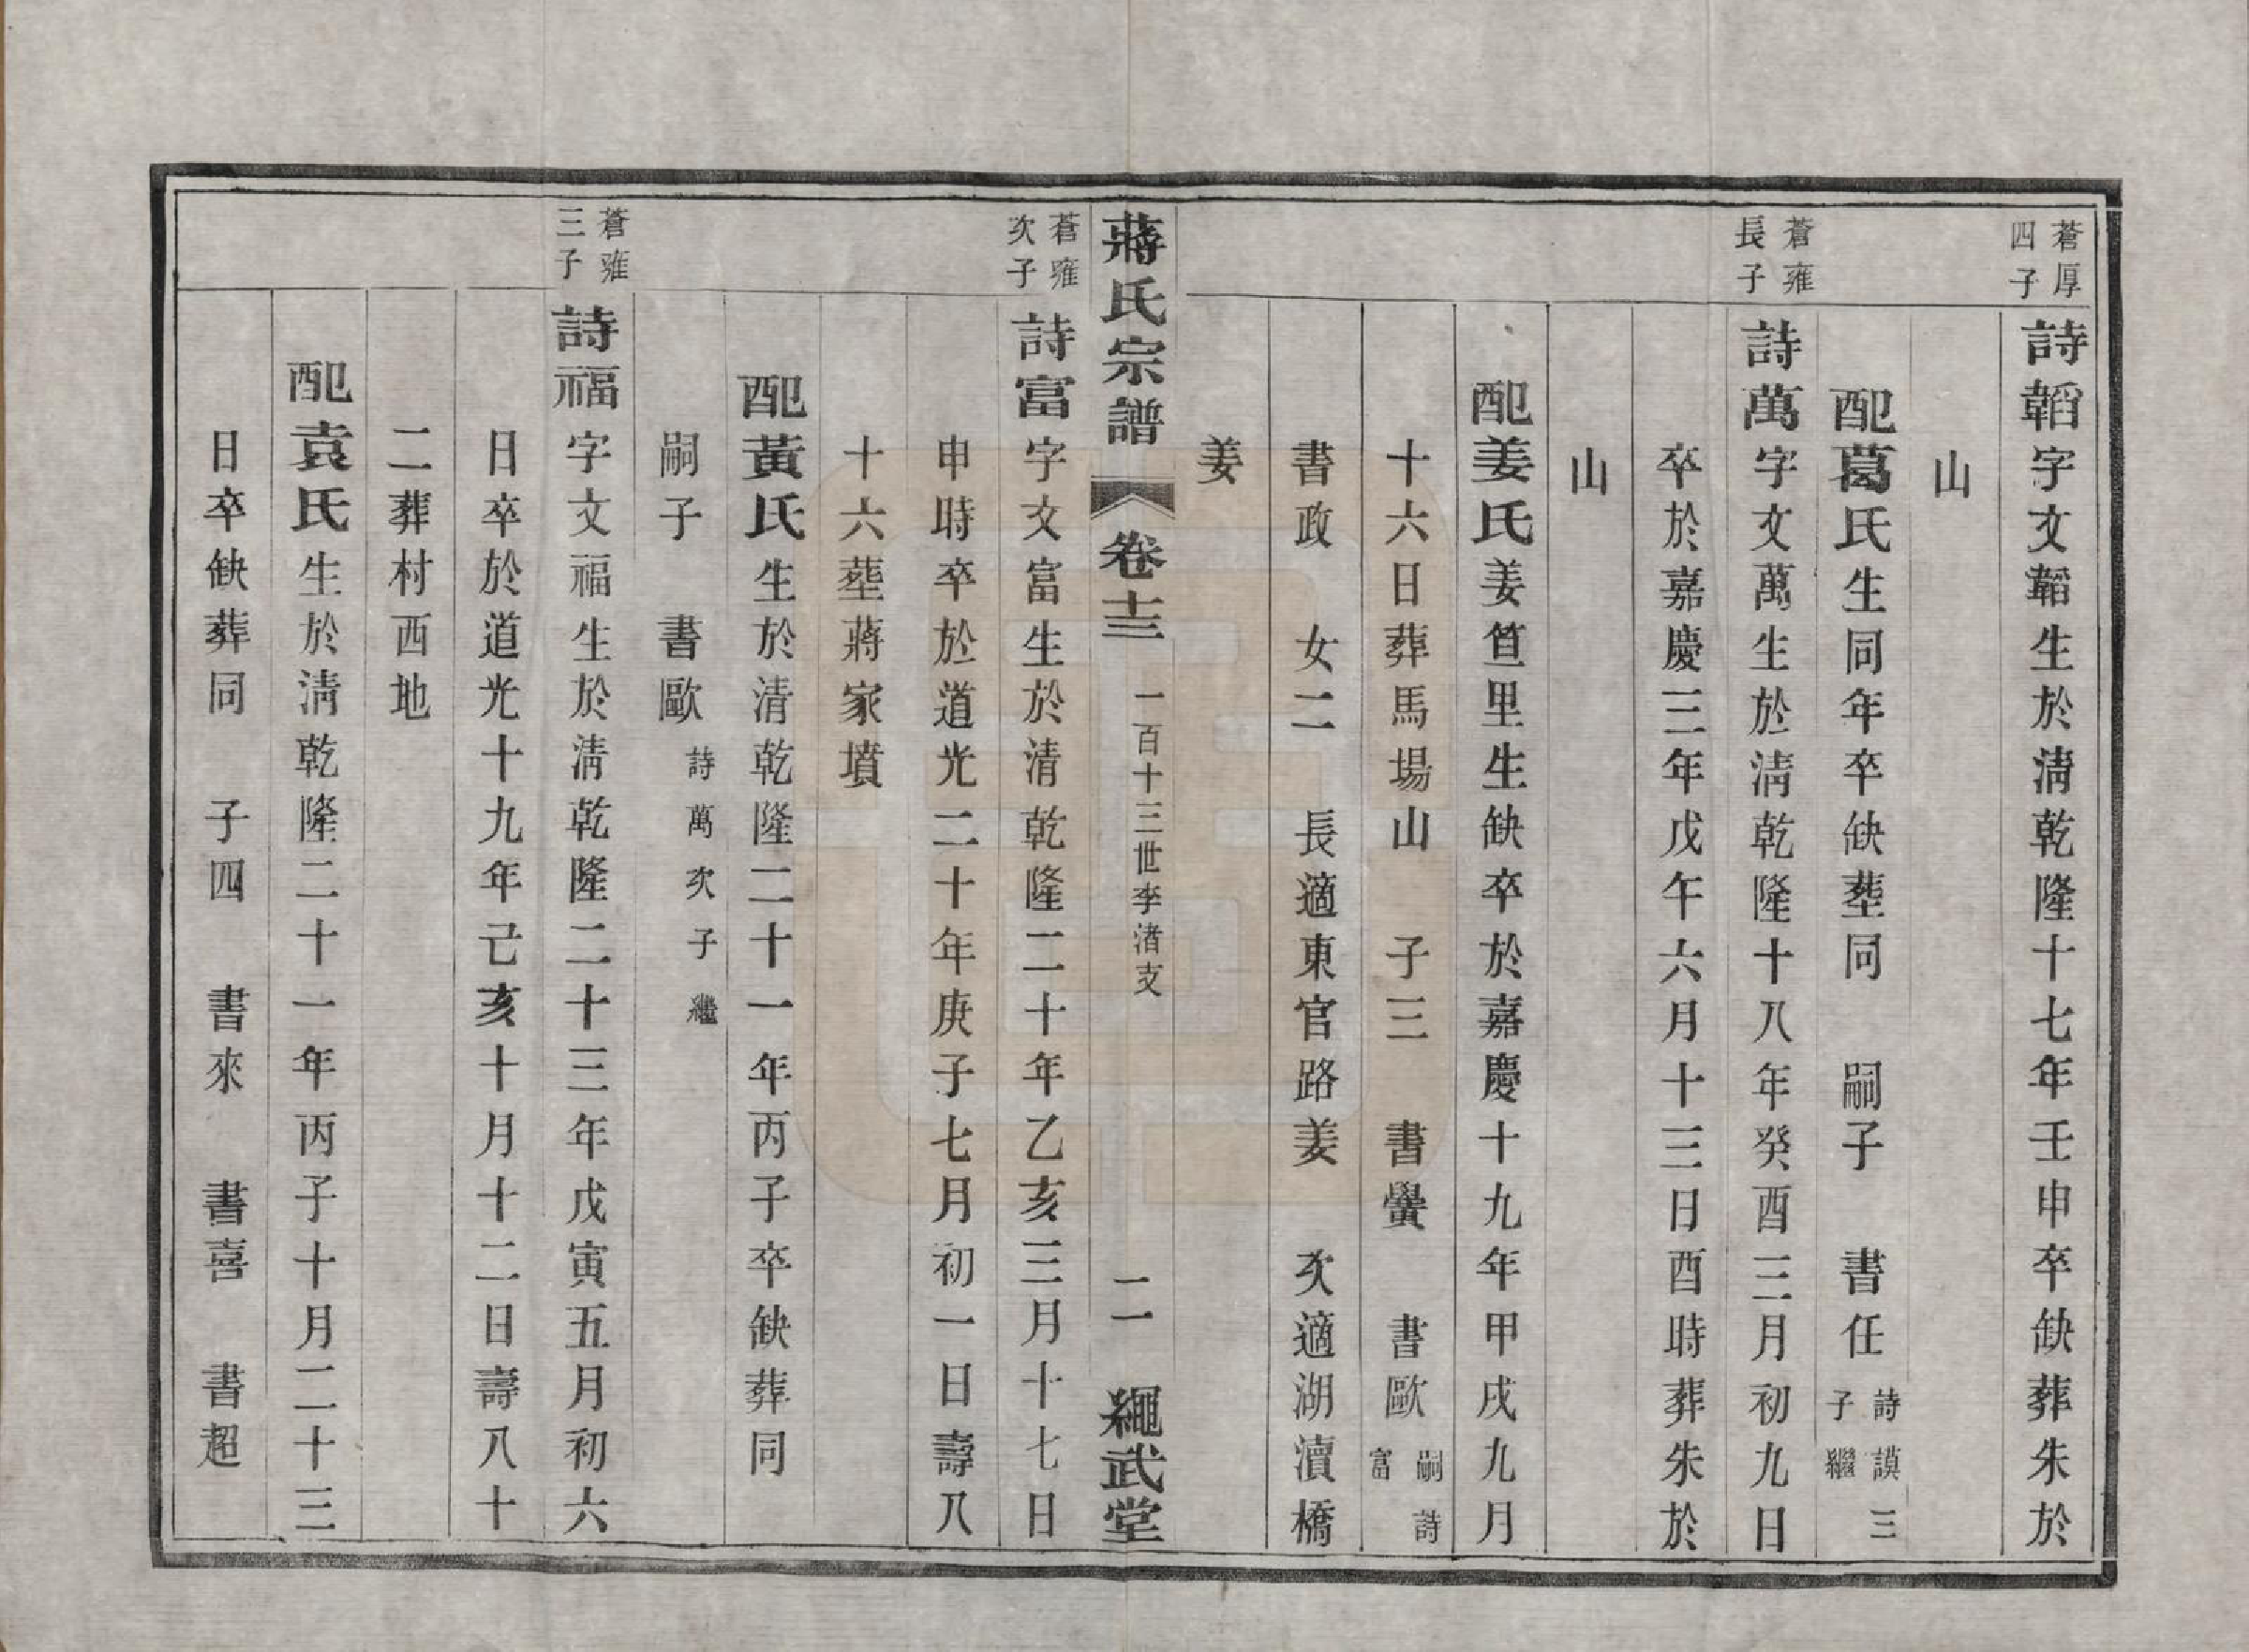 蒼厚四子
詩韜字文韜生於淸乾隆十七年壬申卒缺葬朱於
山
配葛氏生同年卒缺塟同 嗣子 書任 詩謨三子繼
蒼雍長子
詩萬字文萬生於淸乾隆十八年癸酉三月初九日
卒於嘉慶三年戊午六月十三日酉時葬朱於
山
配姜氏姜笪里生缺卒於嘉慶十九年甲戌九月
十六日葬馬場山 子三 書黌 書歐 嗣詩富
書政 女二 長適東官路姜 次適湖瀆橋
姜
蔣氏宗譜 卷十三 一百十三世李渚支 二 繩武堂
蒼雍次子
詩富字文富生於清乾隆二十年乙亥三月十七日
申時卒於道光二十年庚子七月初一日壽八
十六塟蔣家墳
配黃氏生於清乾隆二十一年丙子卒缺葬同
嗣子 書歐 詩萬次子繼
蒼雍三子
詩福字文福生於淸乾隆二十三年戊寅五月初六
日卒於道光十九年己亥十月十二日壽八十
二葬村西地
配袁氏生於淸乾隆二十一年丙子十月二十三
日卒缺葬同 子四 書來 書喜 書超